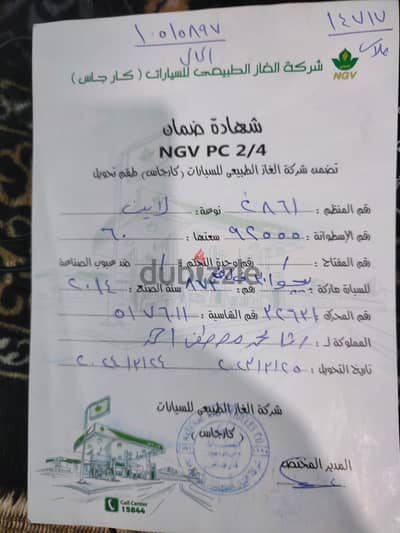 ١٠٥١٥٨٩٧
١٤٧١٧
شركة الغاز الطبيعى للسيارات ( كارجاس )
NGV
شهادة ضمان
NGV PC 2/4
تضمن شركة الغاز الطبيعى للسيارات (كارجاس) طقم تحويل
رقم المنظم : ٢٨٦١ نوعة:
رقم الإسطوانة : ٩٢٥٥٥ سعتها: ٦٠
رقم المفتاح : / رقم وحدة التحكم : / ضد عيوب الصناعة
للسيارة ماركة : بيجو رقم : سنة الصنع : ٢٠١٤
رقم المحرك : رقم الشاسية : ٥١٧٦١١
المملوكة لـ : رشا محمد مصطفى احمد
تاريخ التحويل : ٢٠٢٣/١٢/٢٥ ٢٠٢٤/١٢/٢٤
شركة الغاز الطبيعى للسيارات
( كارجاس )
المدير المختص
Call Center
15844
dubizzle